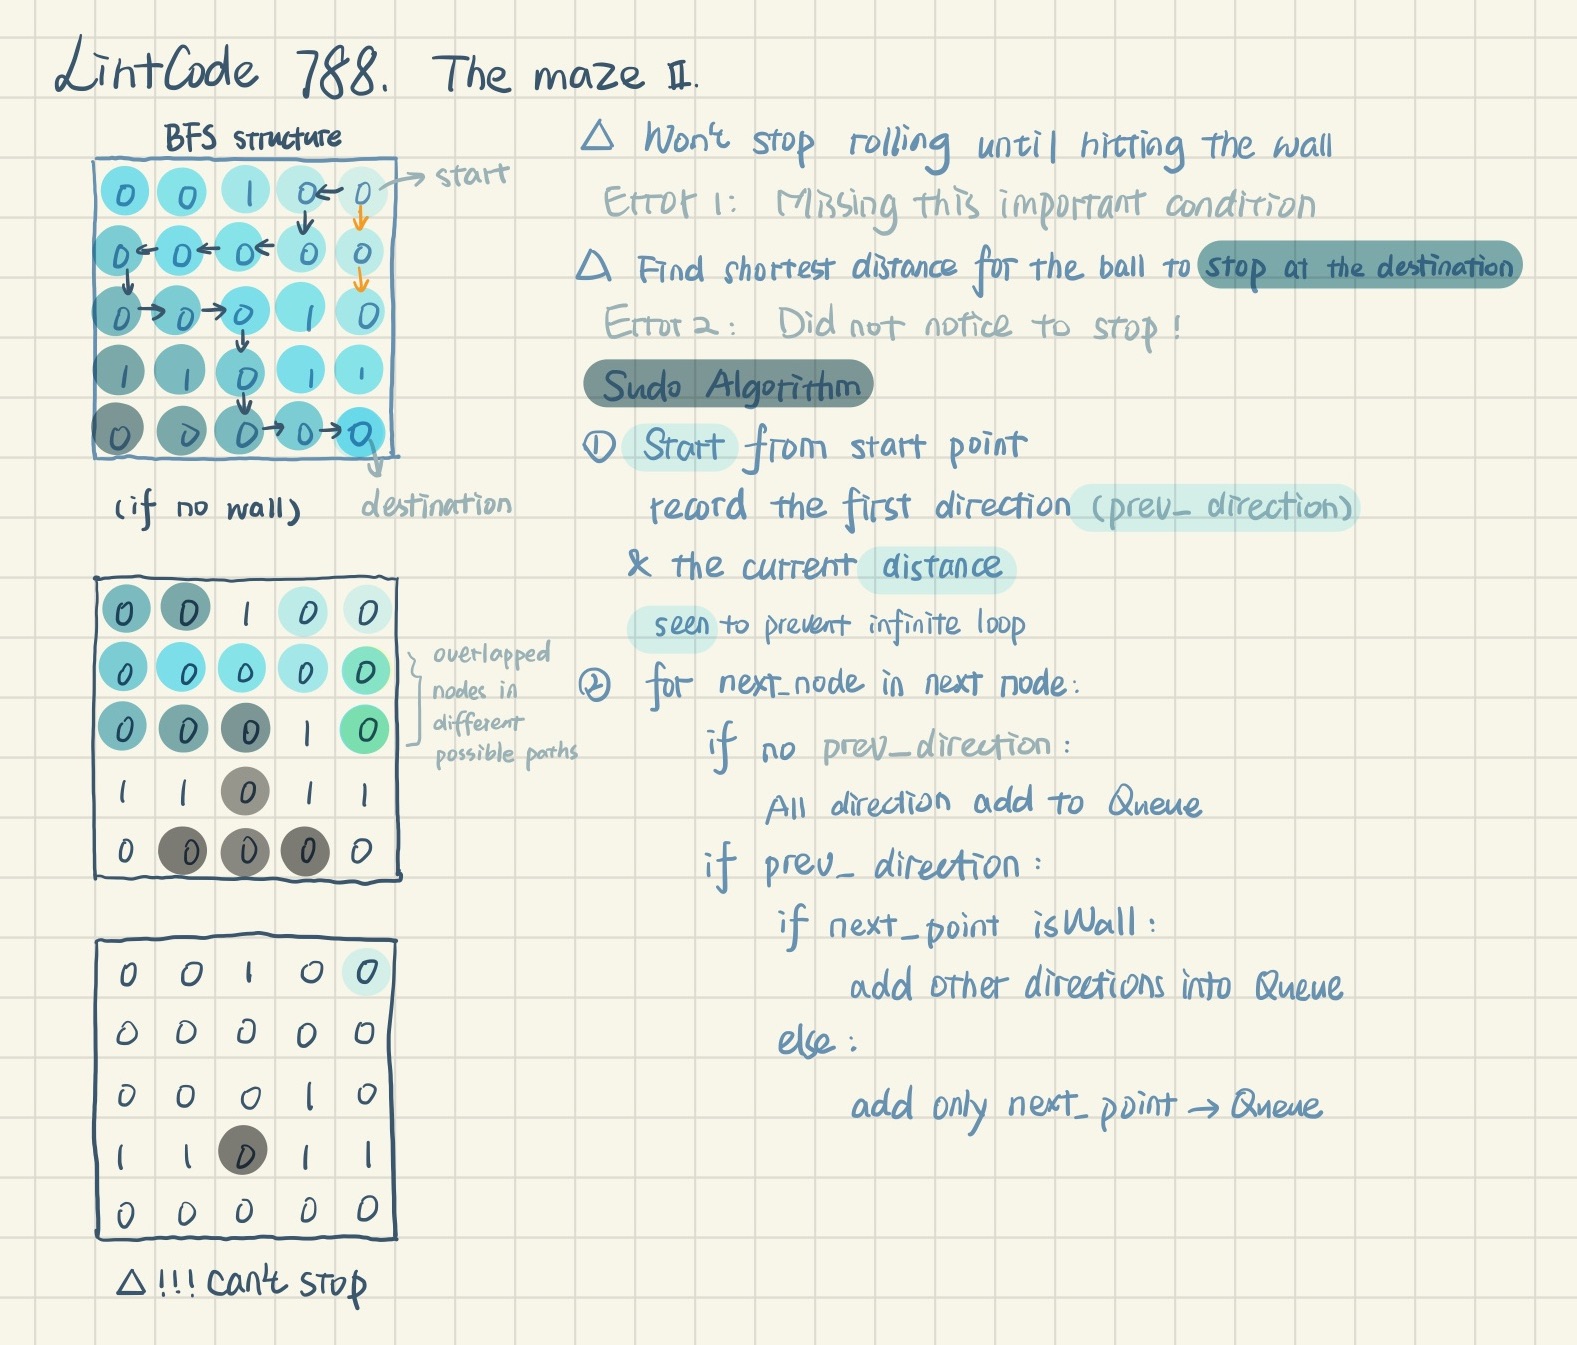 LintCode 788. The maze II.
BFS structure
0 0 1 0 ← 0 → start
0 ← 0 ← 0 ← 0 0
0 → 0 → 0 1 0
1 1 0 1 1
0 0 0 → 0 → 0
(if no wall) destination
0 0 1 0 0
0 0 0 0 0
0 0 0 1 0
1 1 0 1 1
0 0 0 0 0
overlapped
nodes in
different
possible paths
0 0 1 0 0
0 0 0 0 0
0 0 0 1 0
1 1 0 1 1
0 0 0 0 0
△ !!! Can't stop
△ Won't stop rolling until hitting the wall
Error 1: Missing this important condition
△ Find shortest distance for the ball to stop at the destination
Error 2: Did not notice to stop!
Sudo Algorithm
① Start from start point
record the first direction (prev_ direction)
& the current distance
seen to prevent infinite loop
② for next_node in next node:
if no prev_direction:
All direction add to Queue
if prev_ direction:
if next_point isWall:
add other directions into Queue
else:
add only next_ point → Queue